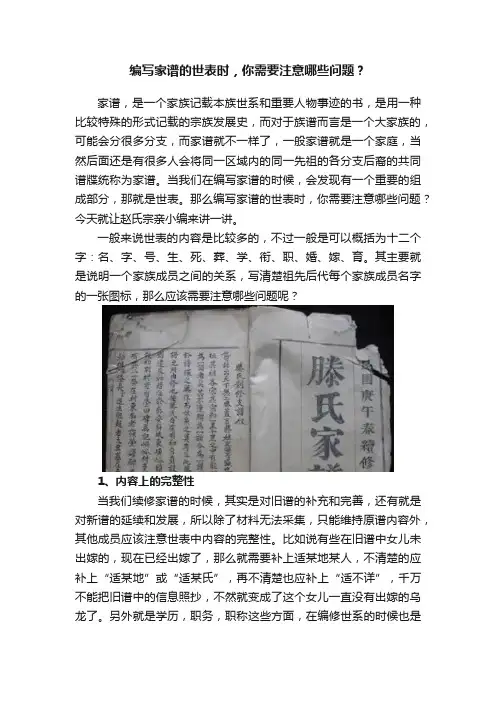 编写家谱的世表时，你需要注意哪些问题？
家谱，是一个家族记载本族世系和重要人物事迹的书，是用一种
比较特殊的形式记载的宗族发展史，而对于族谱而言是一个大家族的，
可能会分很多分支，而家谱就不一样了，一般家谱就是一个家庭，当
然后面还是有很多人会将同一区域内的同一先祖的各分支后裔的共同
谱牒统称为家谱。当我们在编写家谱的时候，会发现有一个重要的组
成部分，那就是世表。那么编写家谱的世表时，你需要注意哪些问题？
今天就让赵氏宗亲小编来讲一讲。
一般来说世表的内容是比较多的，不过一般是可以概括为十二个
字：名、字、号、生、死、葬、学、衔、职、婚、嫁、育。其主要就
是说明一个家族成员之间的关系，写清楚祖先后代每个家族成员名字
的一张图标，那么应该需要注意哪些问题呢？
民国庚午春续修
滕氏家
滕氏创修支谱叙
1、内容上的完整性
当我们续修家谱的时候，其实是对旧谱的补充和完善，还有就是
对新谱的延续和发展，所以除了材料无法采集，只能维持原谱内容外，
其他成员应该注意世表中内容的完整性。比如说有些在旧谱中女儿未
出嫁的，现在已经出嫁了，那么就需要补上适某地某人，不清楚的应
补上“适某地”或“适某氏”，再不清楚也应补上“适不详”，千万
不能把旧谱中的信息照抄，不然就变成了这个女儿一直没有出嫁的乌
龙了。另外就是学历，职务，职称这些方面，在编修世系的时候也是